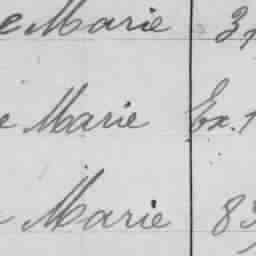 e Marie 3,
e Marie Ex. 1
Marie 83